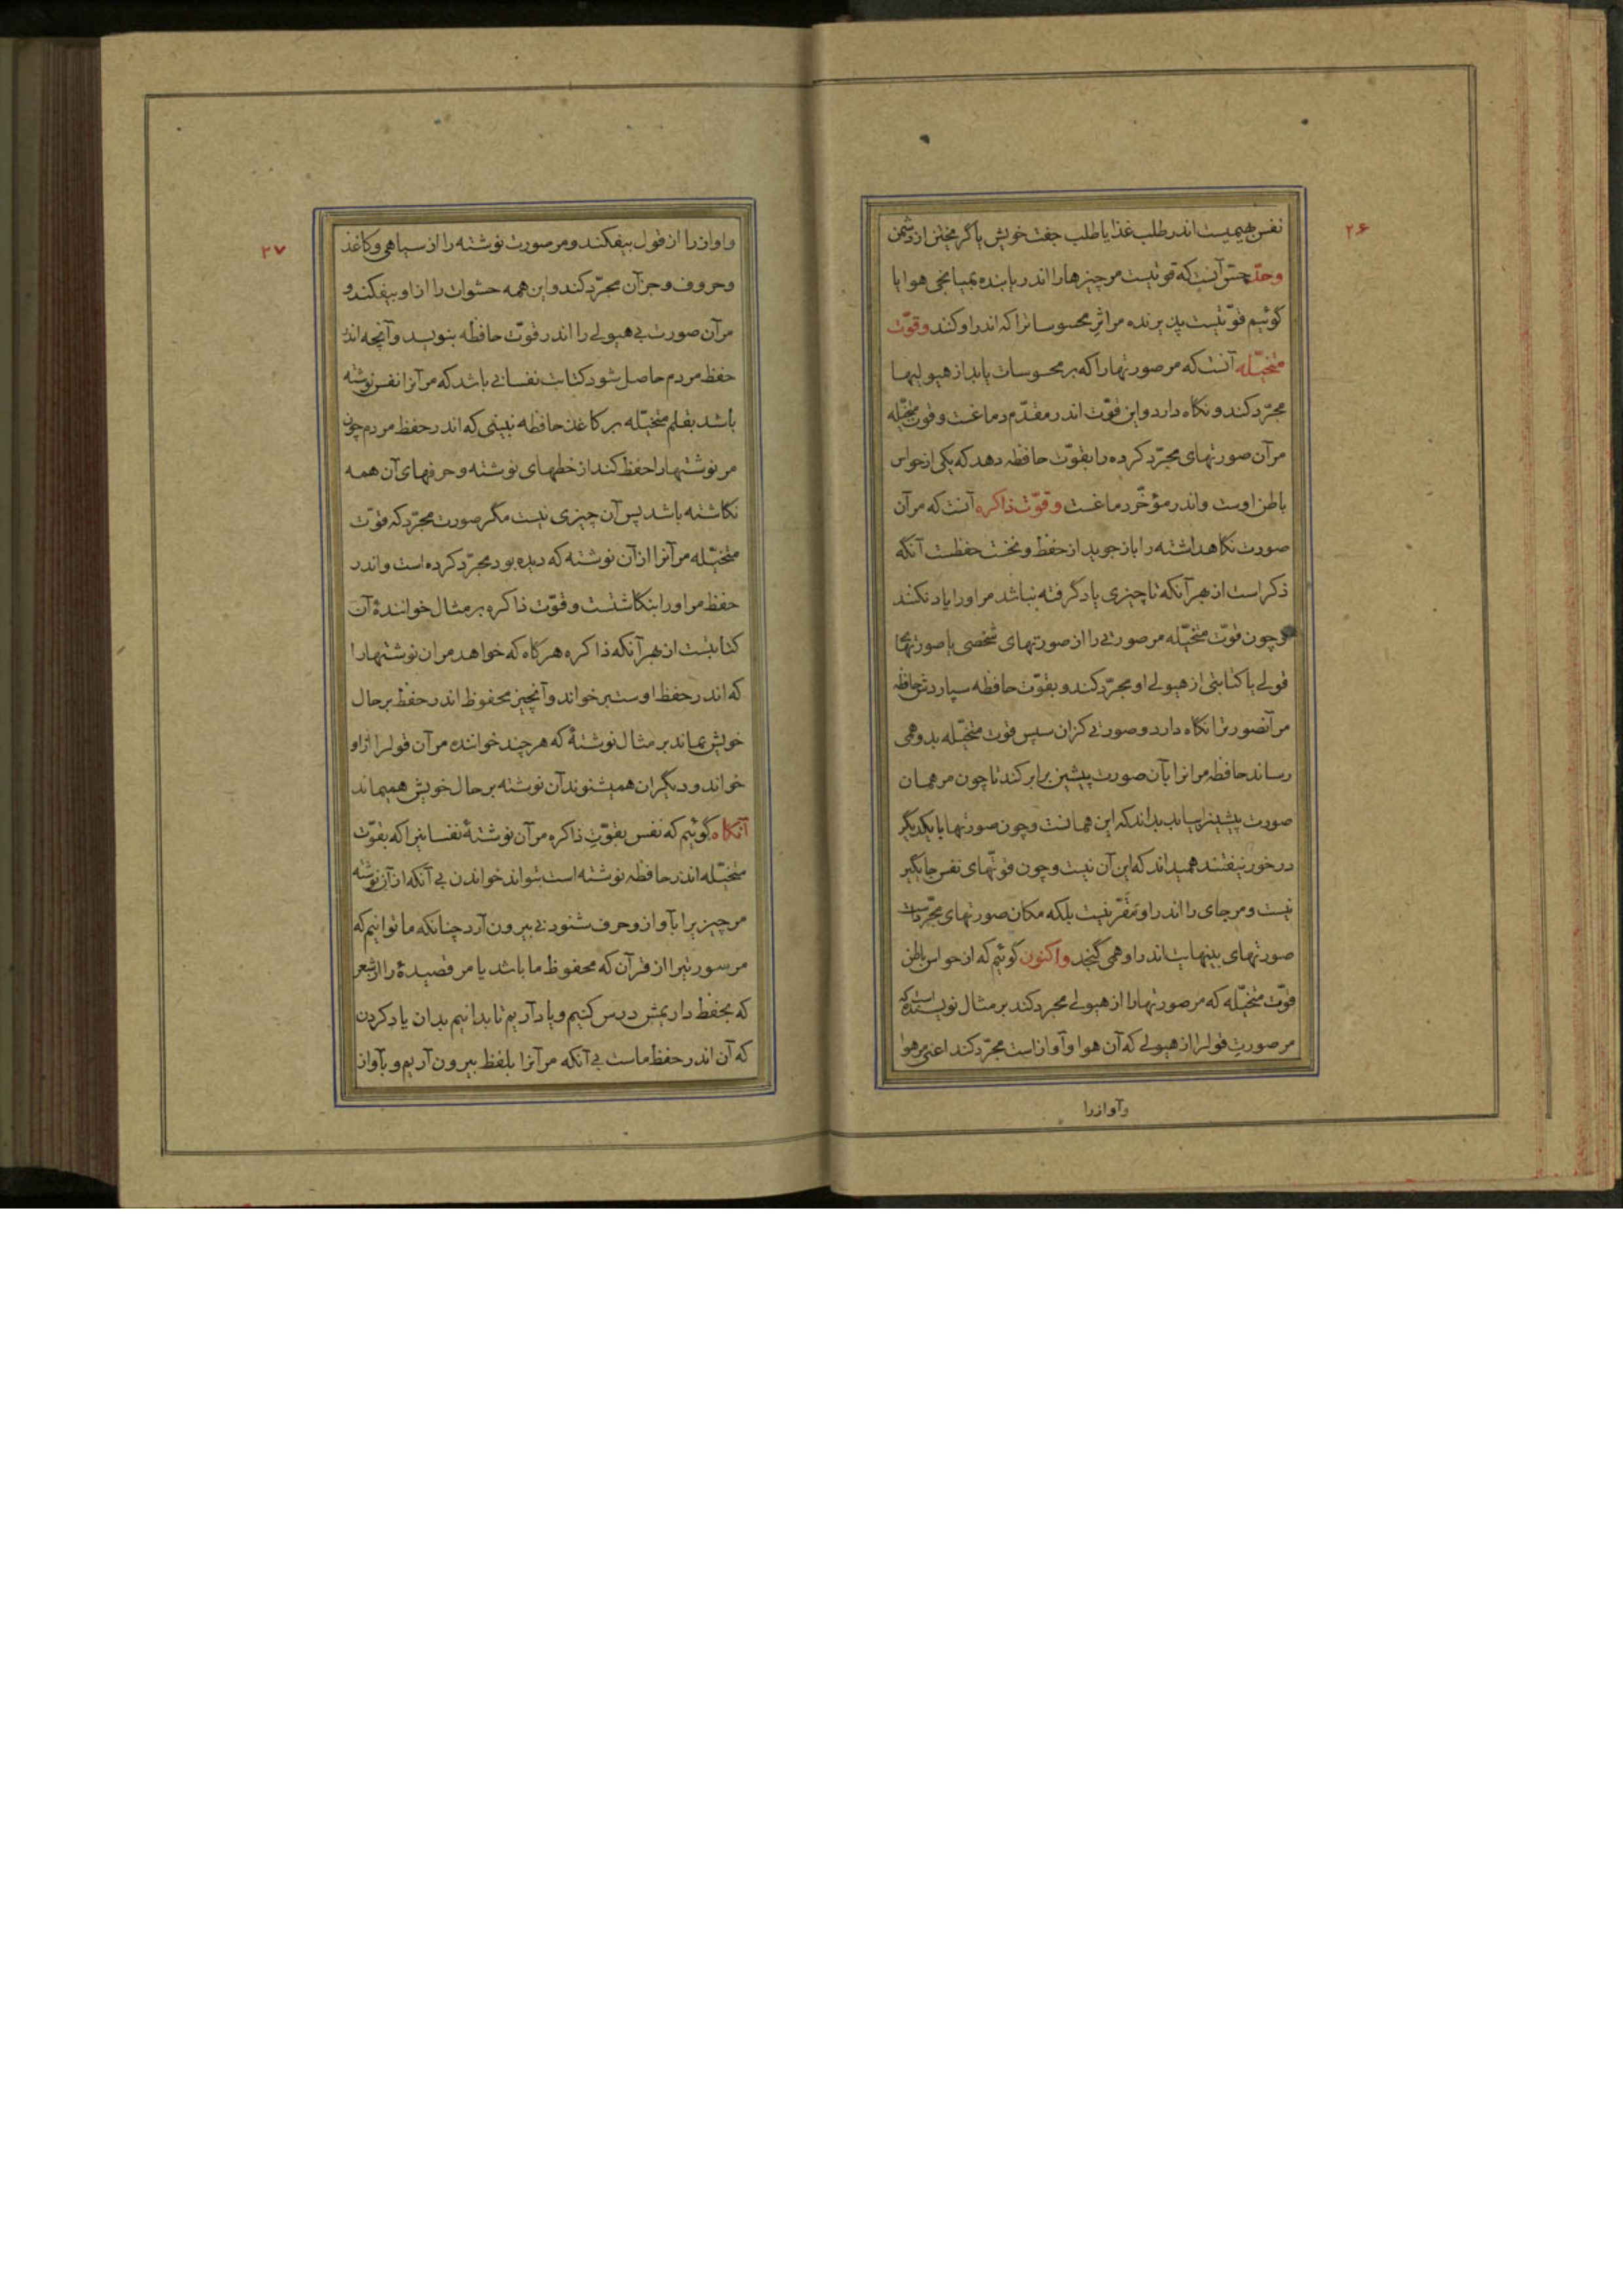 ۲۶
نفس بهیمیست اندر طلب غذا یا طلب جفت خویش یا گریختن از دشمن
وحدّ حسّ آنست که قوتیست مر چیزها را اندر یابنده بمیانجی هوا یا
گوئیم قوّتیست پذیرنده مر اثر محسوساترا که اندر او کند وقوّت
متخیّله آنست که مر صورتهارا که بر محسوسات یابد از هیولیها
مجرّد کند و نگاه دارد واین قوّت اندر مقدّم دماغست وقوت متخیّله
مرآن صورتهای مجرّد کرده را بقوّت حافظه دهد که یکی از حواس
باطن اوست واندر مؤخّر دماغست وقوّت ذاکره آنست که مرآن
صورت نگاهداشته را باز جوید از حفظ و نخست حفظست آنگه
ذکر است از بهر آنکه تا چیزی یاد گرفته نباشد مر اورا یاد نکنند
وچون قوّت متخیّله مر صورتی را از صورتهای شخصی یا صورتها
قولی یا کتابتی از هیولی او مجرّد کند و بقوّت حافظه سپاردش حافظه
مرآنصورترا نگاه دارد وصورتی کزان سپس قوت متخیّله بدو همی
رساند حافظه مرانرا بآن صورت پیشین برابر کند تا چون مر همان
صورت پیشینرا بیابد بداند که این همانست وچون صورتها با یکدیگر
در خور نیفتند همیداند که این آن نیست وچون قوتّهای نفس جایگیر
نیست ومر جای را اندر او مقرّ نیست بلکه مکان صورتهای مجرّدست
صورتهای بینهایت اندر او همی گنجد واکنون گوئیم که از حواس باطن
قوّت متخیّله که مر صورتهارا از هیولی مجرد کند بر مثال نویسنده است که
مر صورت قولرا از هیولی که آن هوا وآواز است مجرّد کند اعنی مر هوا
وآواز را
۲۷
واواز را از قول بیفکند ومر صورت نوشته را از سیاهی وکاغذ
وحروف وجز آن مجرّد کند واین همه حشوات را از او بیفکند و
مرآن صورت بی هیولی را اندر قوّت حافظه بنویسد وآنچه اندر
حفظ مردم حاصل شود کتابت نفسانی باشد که مرآنرا نفس نوشته
باشد بقلم متخیّله بر کاغذ حافظه نبینی که اندر حفظ مردم چون
مر نوشتهارا حفظ کند از خطهای نوشته وحرفهای آن همه
نگاشته باشد پس آن چیزی نیست مگر صورت مجرّد که قوّت
متخیّله مرآنرا از آن نوشته که دیده بود مجرّد کرده است واندر
حفظ مر اورا بنگاشتست وقوّت ذاکره بر مثال خوانندهٔ آن
کتابتست از بهر آنکه ذاکره هرگاه که خواهد مران نوشتهارا
که اندر حفظ اوست بر خواند وآنچیز محفوظ اندر حفظ بر حال
خویش بماند بر مثال نوشتهٔ که هر چند خواننده مرآن قولرا از او
خواند ودیگران همیشنوند آن نوشته بر حال خویش همیماند
آنگاه گوئیم که نفس بقوّت ذاکره مرآن نوشتهٔ نفسانیرا که بقوّت
متخیّله اندر حافظه نوشته است بتواند خواندن بی آنکه از آن نوشته
مر چیزیرا بآواز وحرف شنودنی بیرون آرد چنانکه ما توانیم که
مر سورتیرا از قرآن که محفوظ ما باشد یا مر قصیدهٔ را از شعر
که بحفظ داریمش درس کنیم ویاد آریم تا بدانیم بدان یاد کردن
که آن اندر حفظ ماست بی آنکه مرآنرا بلفظ بیرون آریم وبآواز